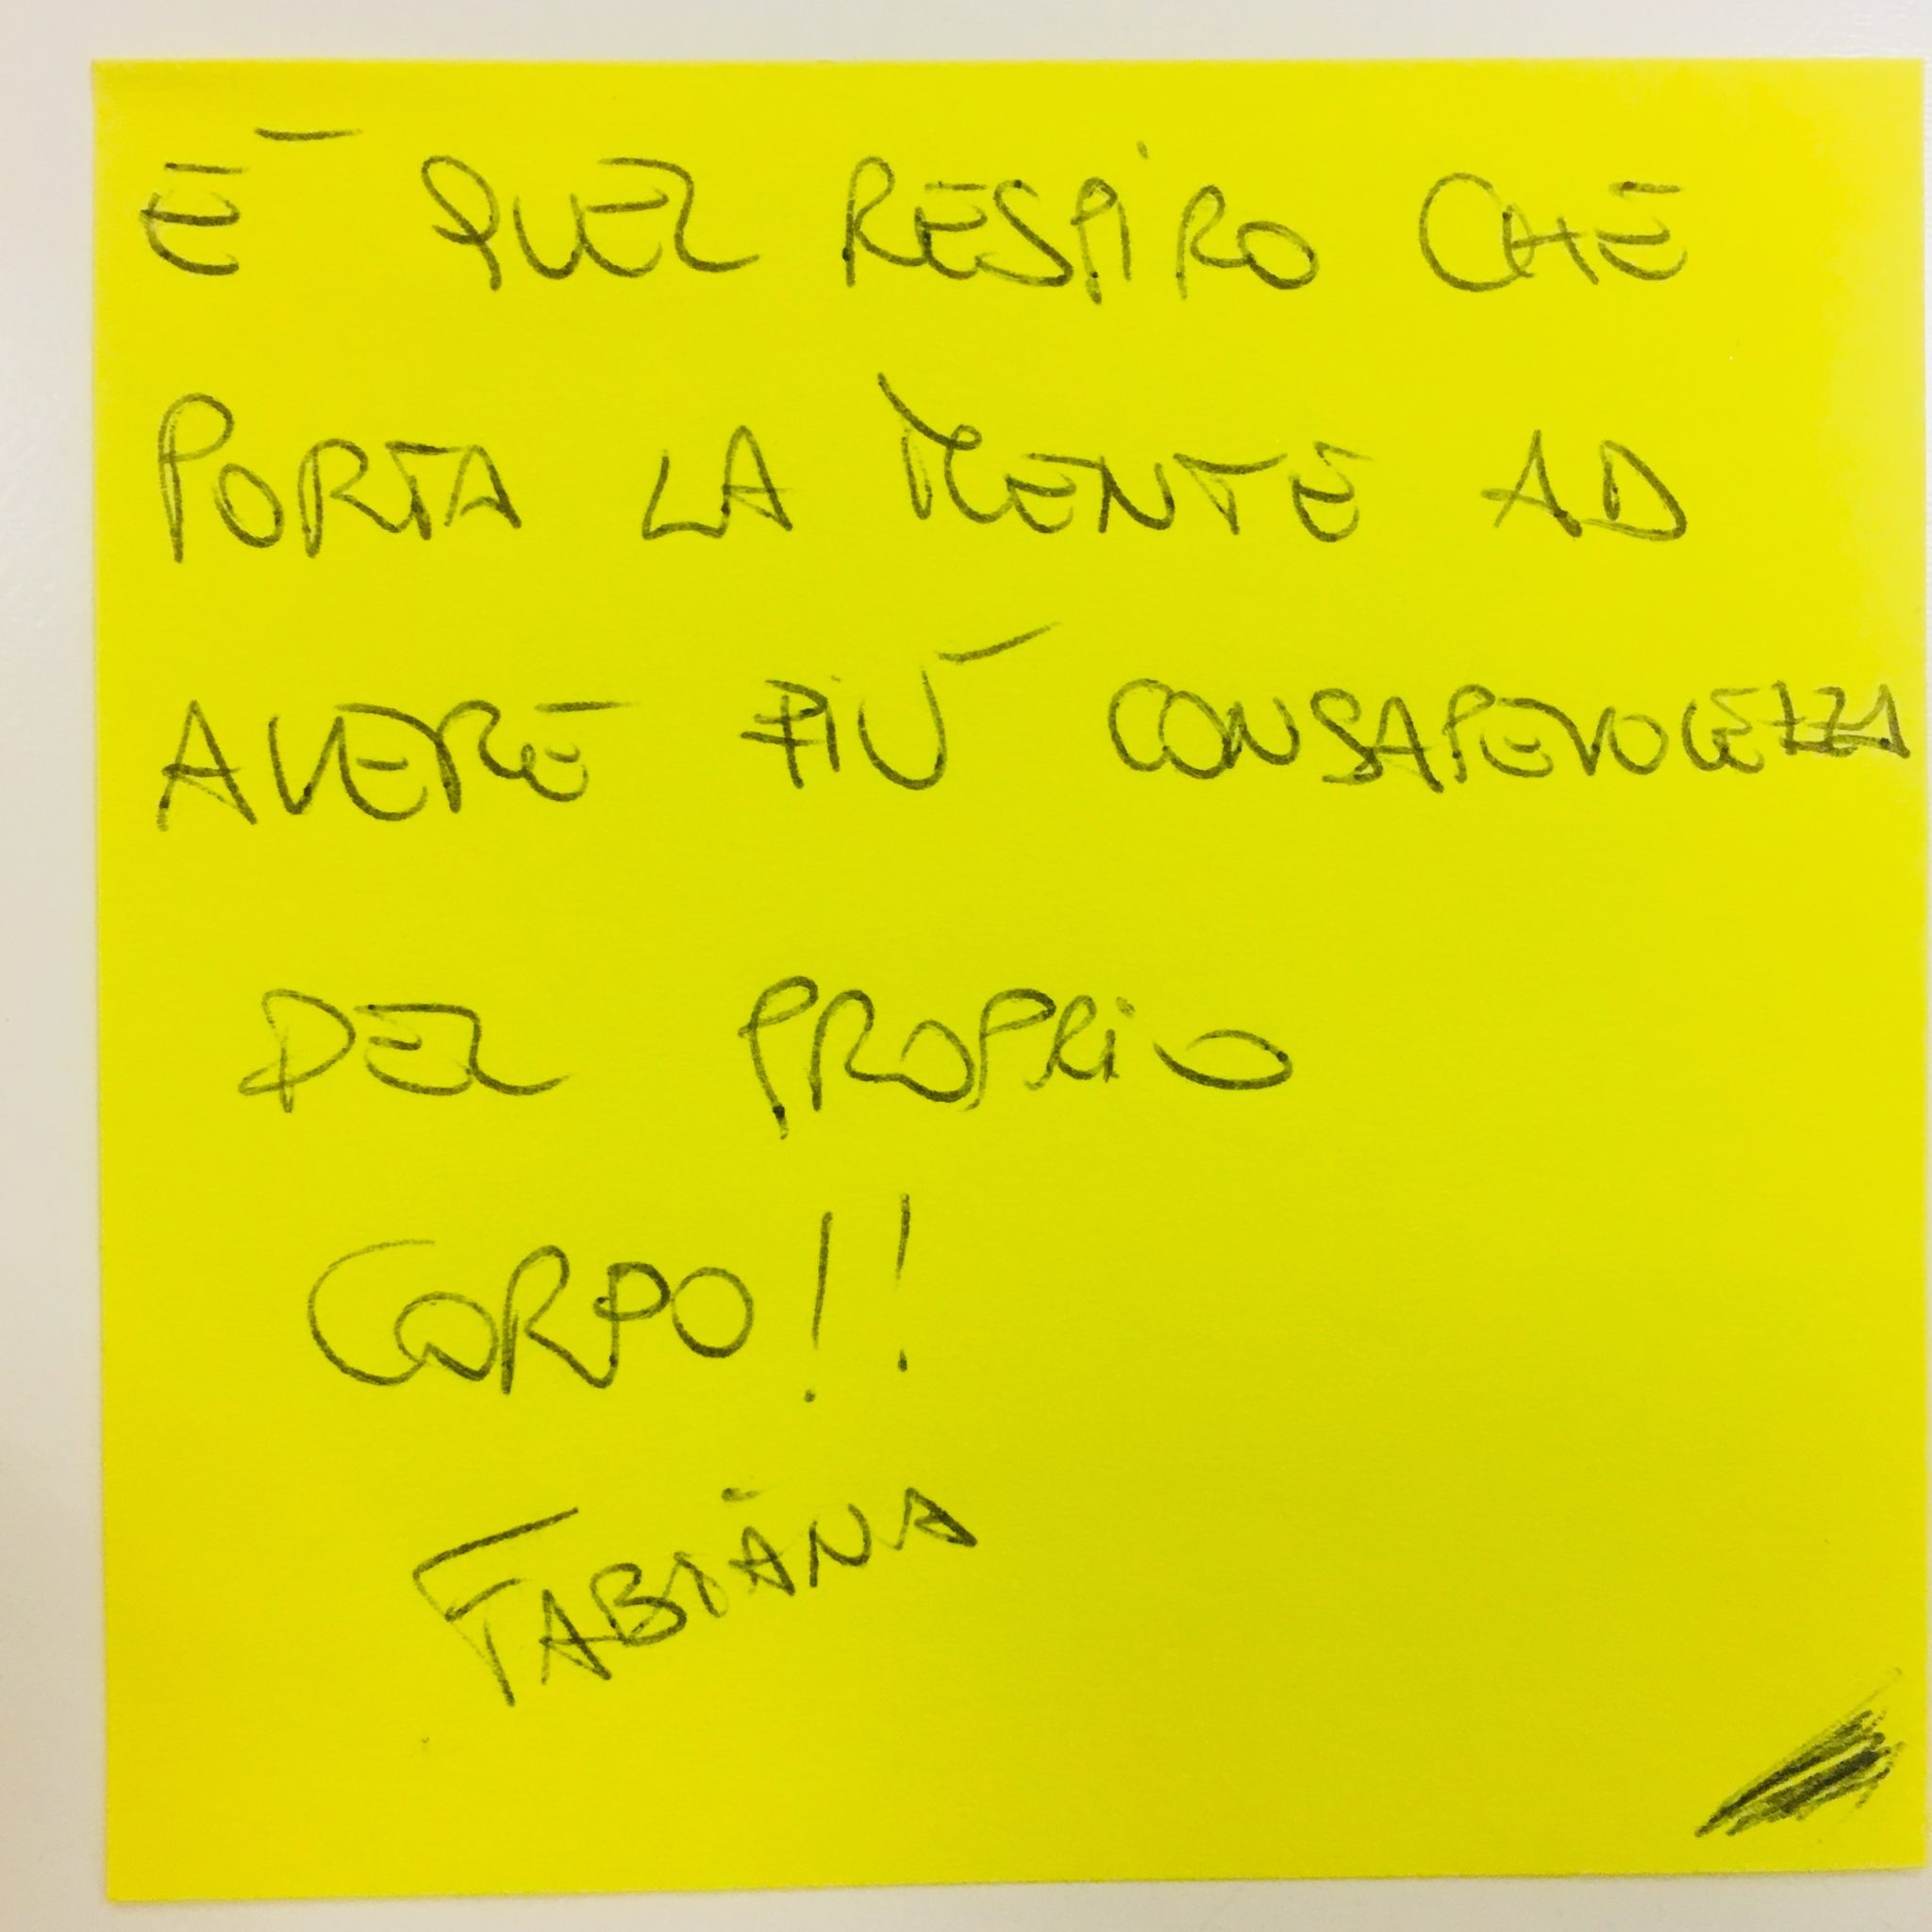 E' QUEL RESPIRO CHE
PORTA LA MENTE AD
AVERE PIÙ CONSAPEVOLEZZA
DEL PROPRIO
CORPO!!
FABIANA